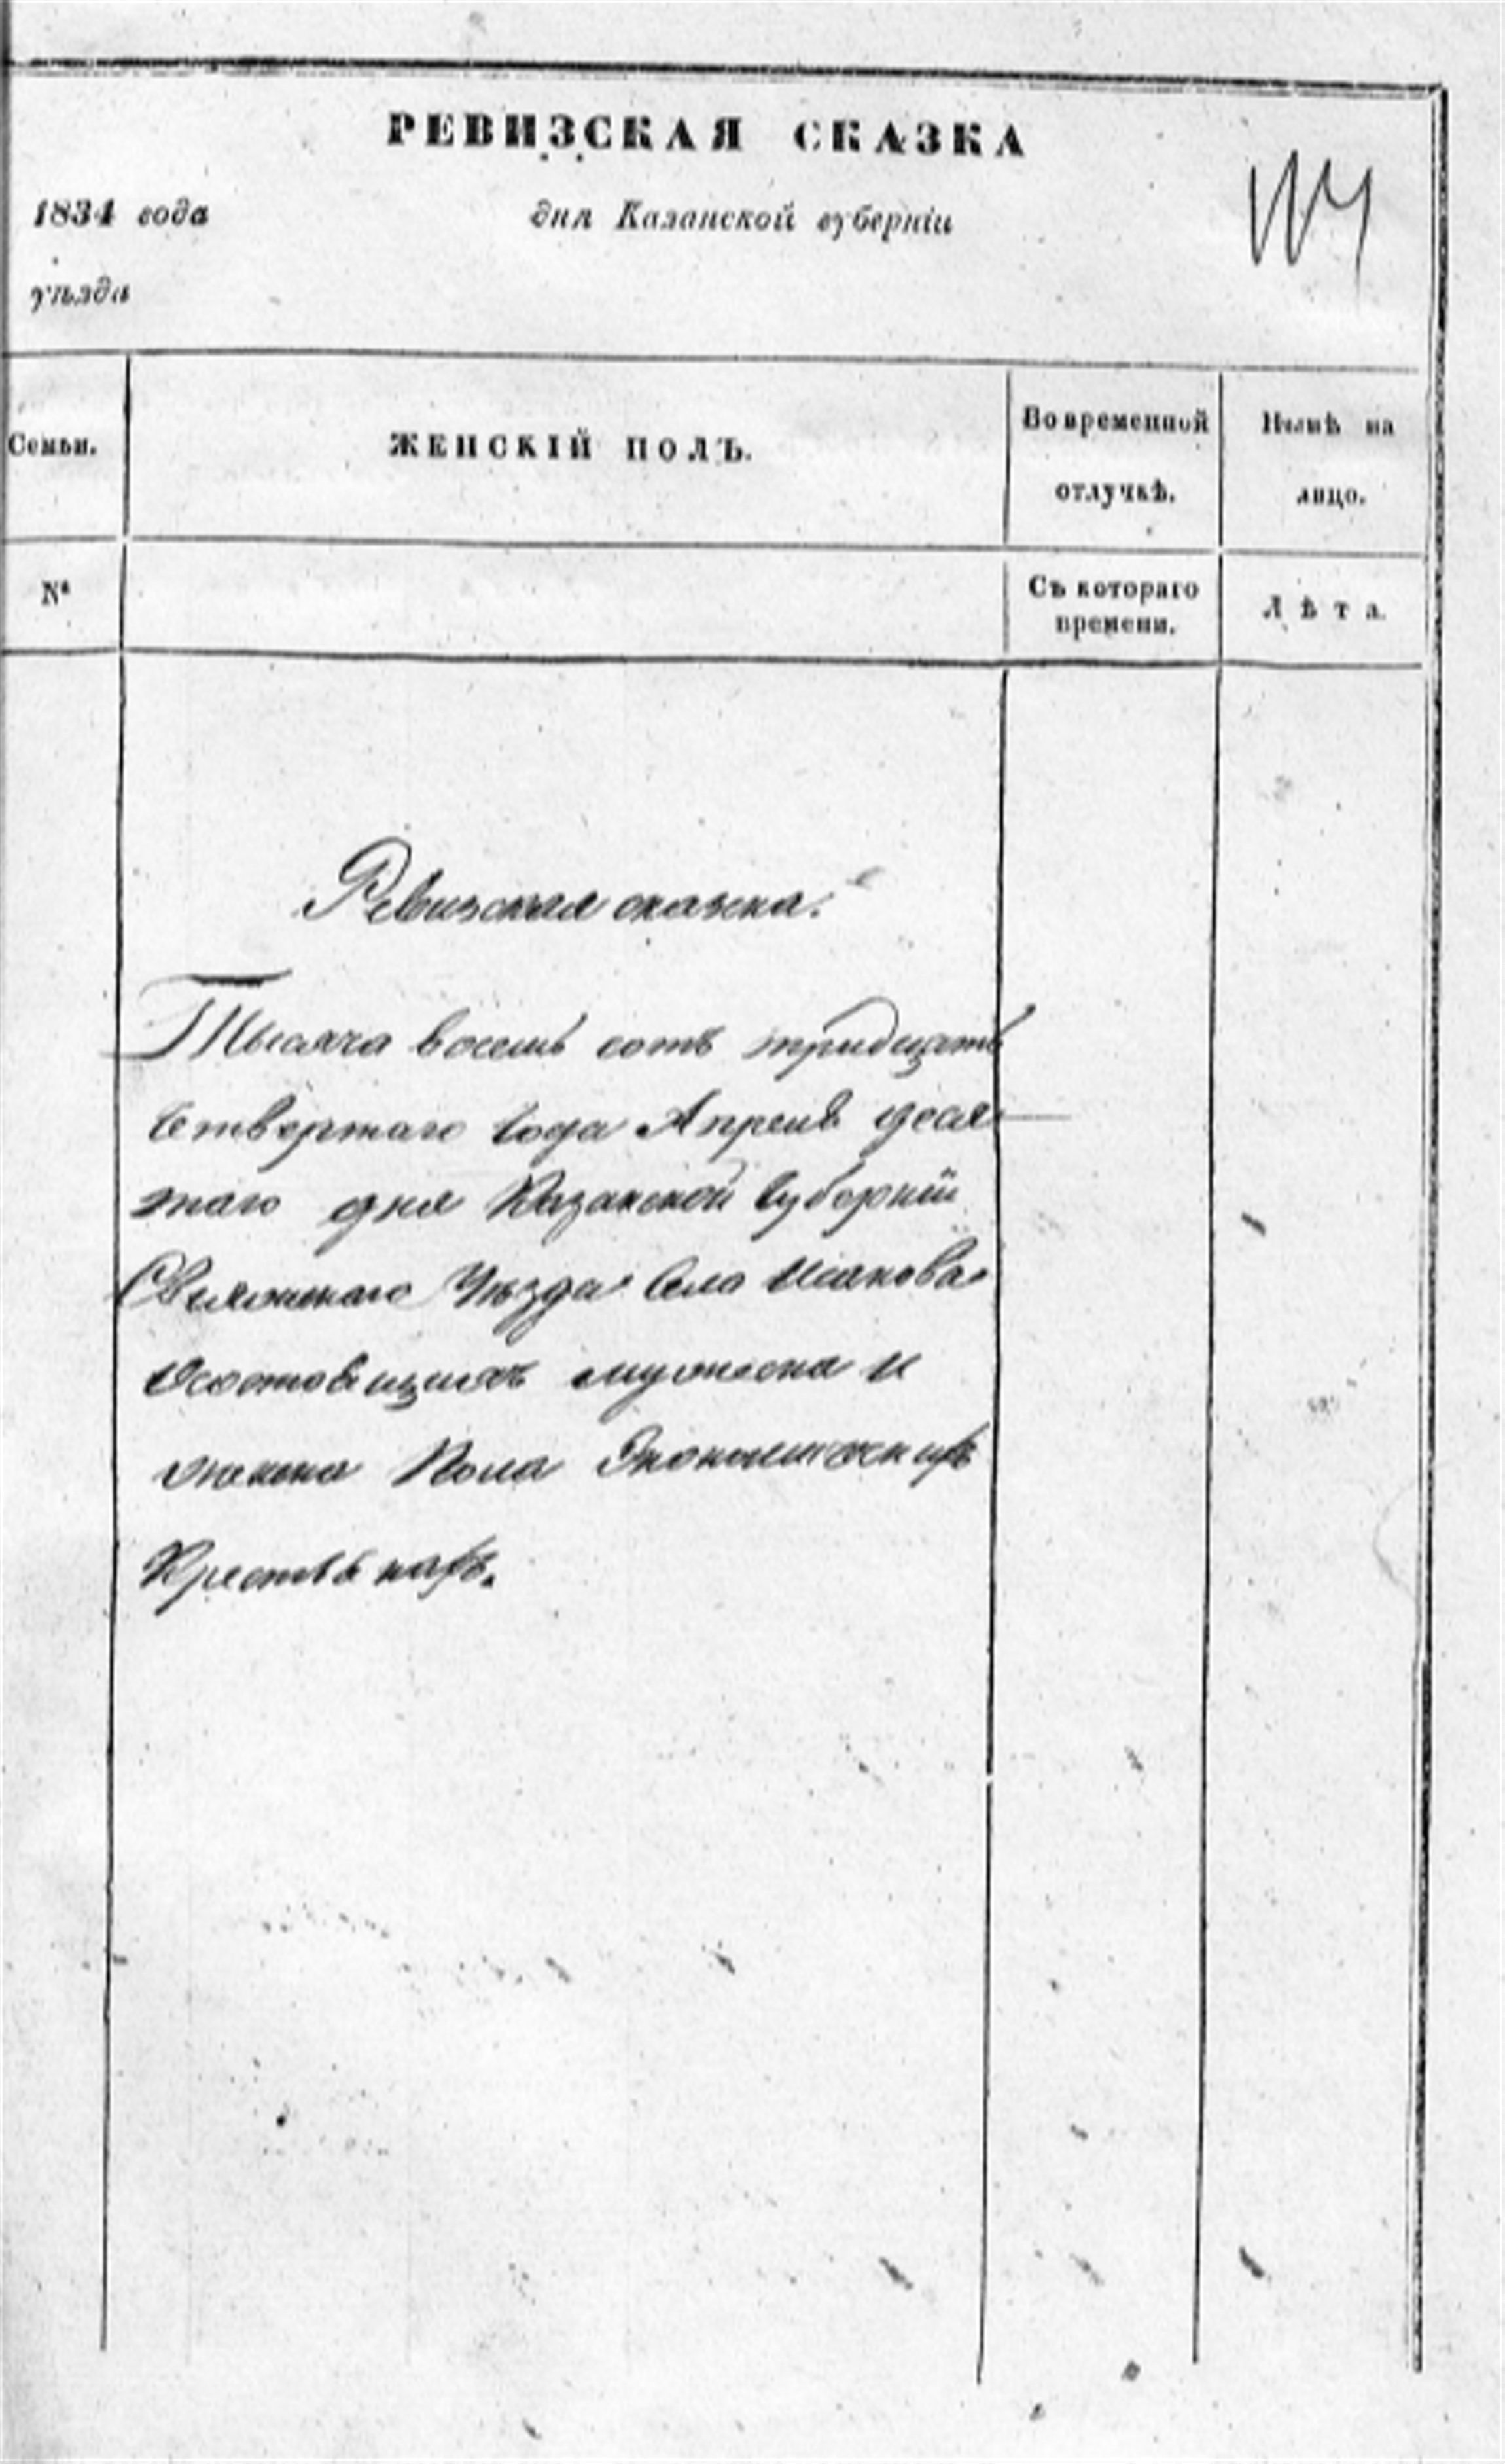 РЕВИЗСКАЯ СКАЗКА
1834 года дня Казанской губерніи
уѣзда
Семьи. ЖЕНСКІЙ ПОЛЪ. Во временной отлучкѣ. Нынѣ на лицо.
№ Съ котораго времени. Лѣта.
Ревизская сказка.
Тысяча восемь сотъ тридцать
четвертаго года Апреля деся
таго дня Казанской Губерніи
Свіяжскаго Уѣзда Села Исакова
О состоящихъ мужеска и
женска Пола Экономическихъ
Крестьянахъ.